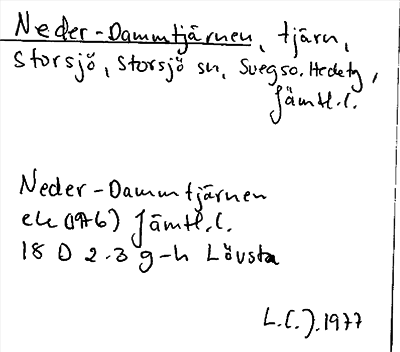 Neder-Dammtjärnen, tjärn,
Storsjö, Storsjö sn, Svegs o. Hedetg,
Jämtl. l.
Neder-Dammtjärnen
ek (1976) Jämtl. l.
18 D 2-3 g-h Lövsta
L.C.J. 1977